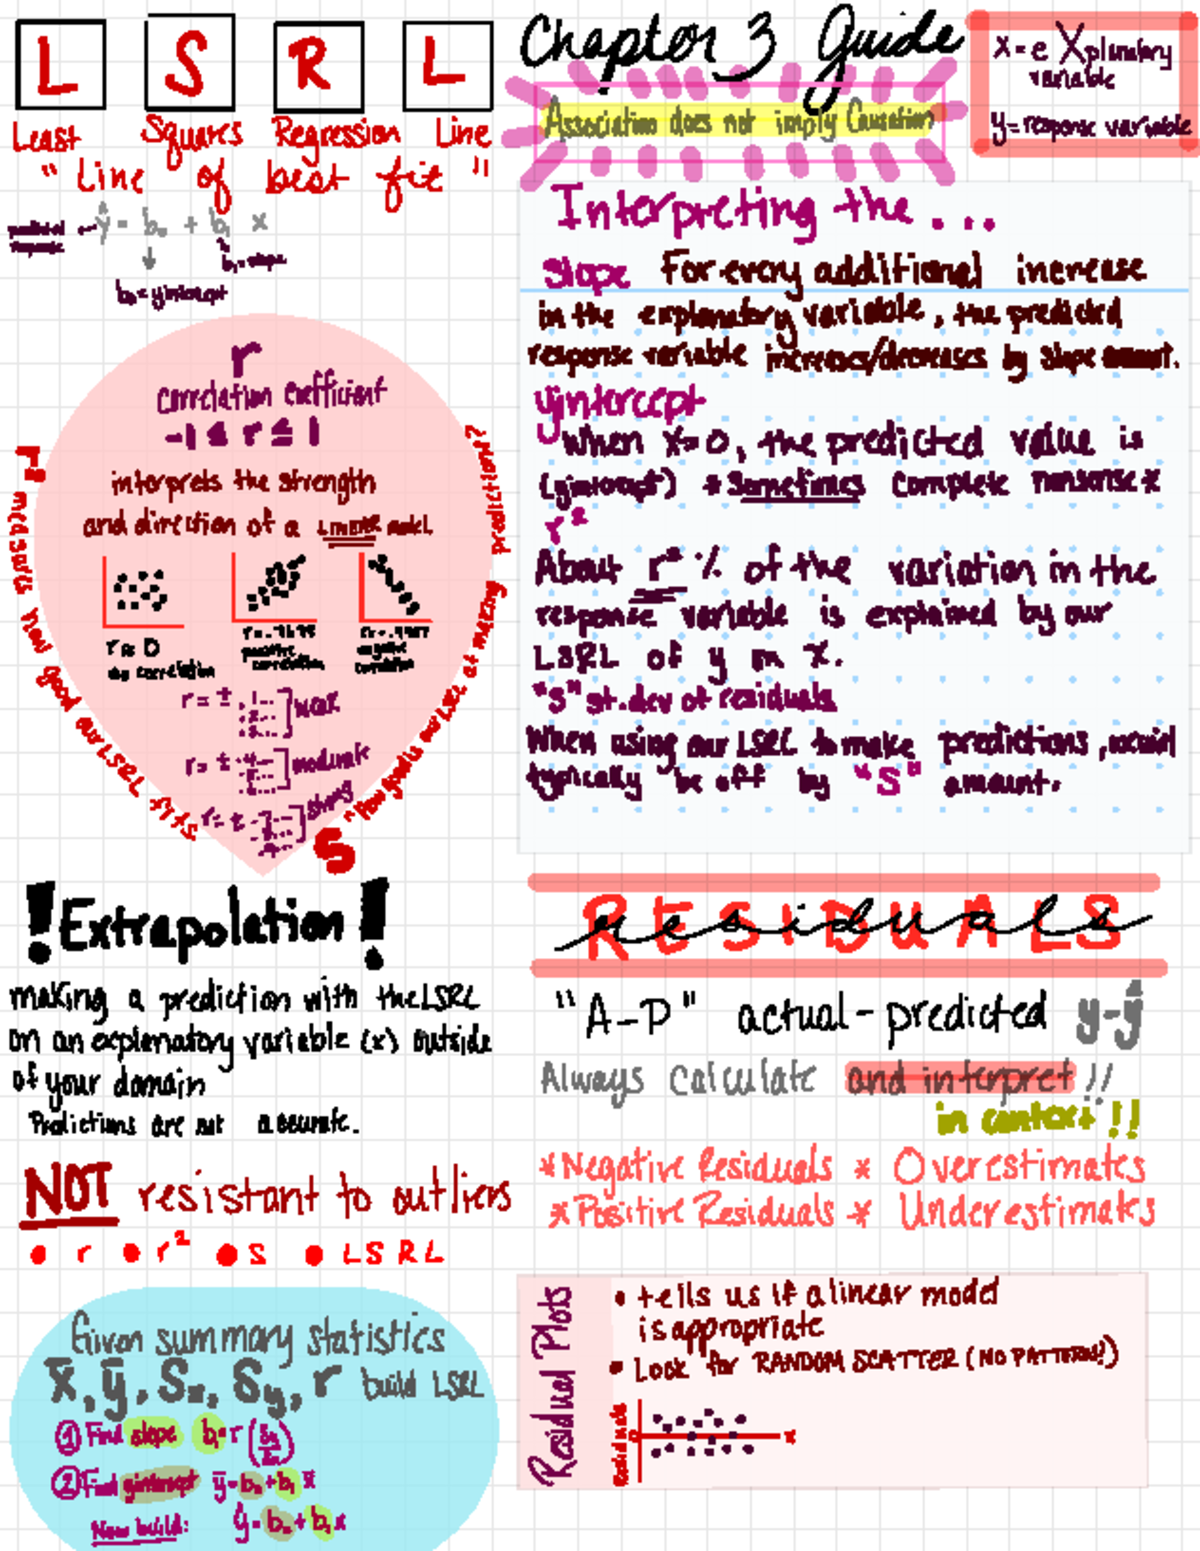 L S R L
Least Squares Regression Line
"Line of best fit"
ŷ = b₀ + b₁ x
predicted response
b₁ = slope
b₀ = y intercept
r
correlation coefficient
-1 ≤ r ≤ 1
interprets the strength
and direction of a LINEAR model.
r ≈ 0
no correlation
positive correlation
negative correlation
r = ± .1...
] weak
r = ± .4...
] moderate
r = ±
] strong
r² measures how good our LSRL fits
S "how good is our LSRL at making predictions?
! Extrapolation !
making a prediction with the LSRL
on an explanatory variable (x) outside
of your domain
Predictions are not accurate.
NOT resistant to outliers
• r • r² • S • LSRL
Given summary statistics
x̄, ȳ, Sx, Sy, r build LSRL
① Find slope b₁ = r
② Find yintercept ȳ = b₀ + b₁ x̄
Now build: ŷ = b₀ + b₁x
Chapter 3 Guide
Association does not imply Causation
X = eXplanatory
variable
y = response variable
Interpreting the ...
slope For every additional increase
in the explanatory variable, the predicted
response variable increases/decreases by slope amount.
yintercept
When x=0, the predicted value is
(yintercept) * Sometimes complete nonsense *
r²
About r² % of the variation in the
response variable is explained by our
LSRL of y on x.
"S" st. dev of residuals
When using our LSRL to make predictions, would
typically be off by "S" amount.
RESIDUALS
residuals
"A-P" actual - predicted y-ŷ
Always calculate and interpret !!
in context !!
*Negative Residuals * Overestimates
*Positive Residuals * Underestimates
Residual Plots
• tells us if a linear model
is appropriate
• Look for RANDOM SCATTER (NO PATTERN!)
Residuals
0
x